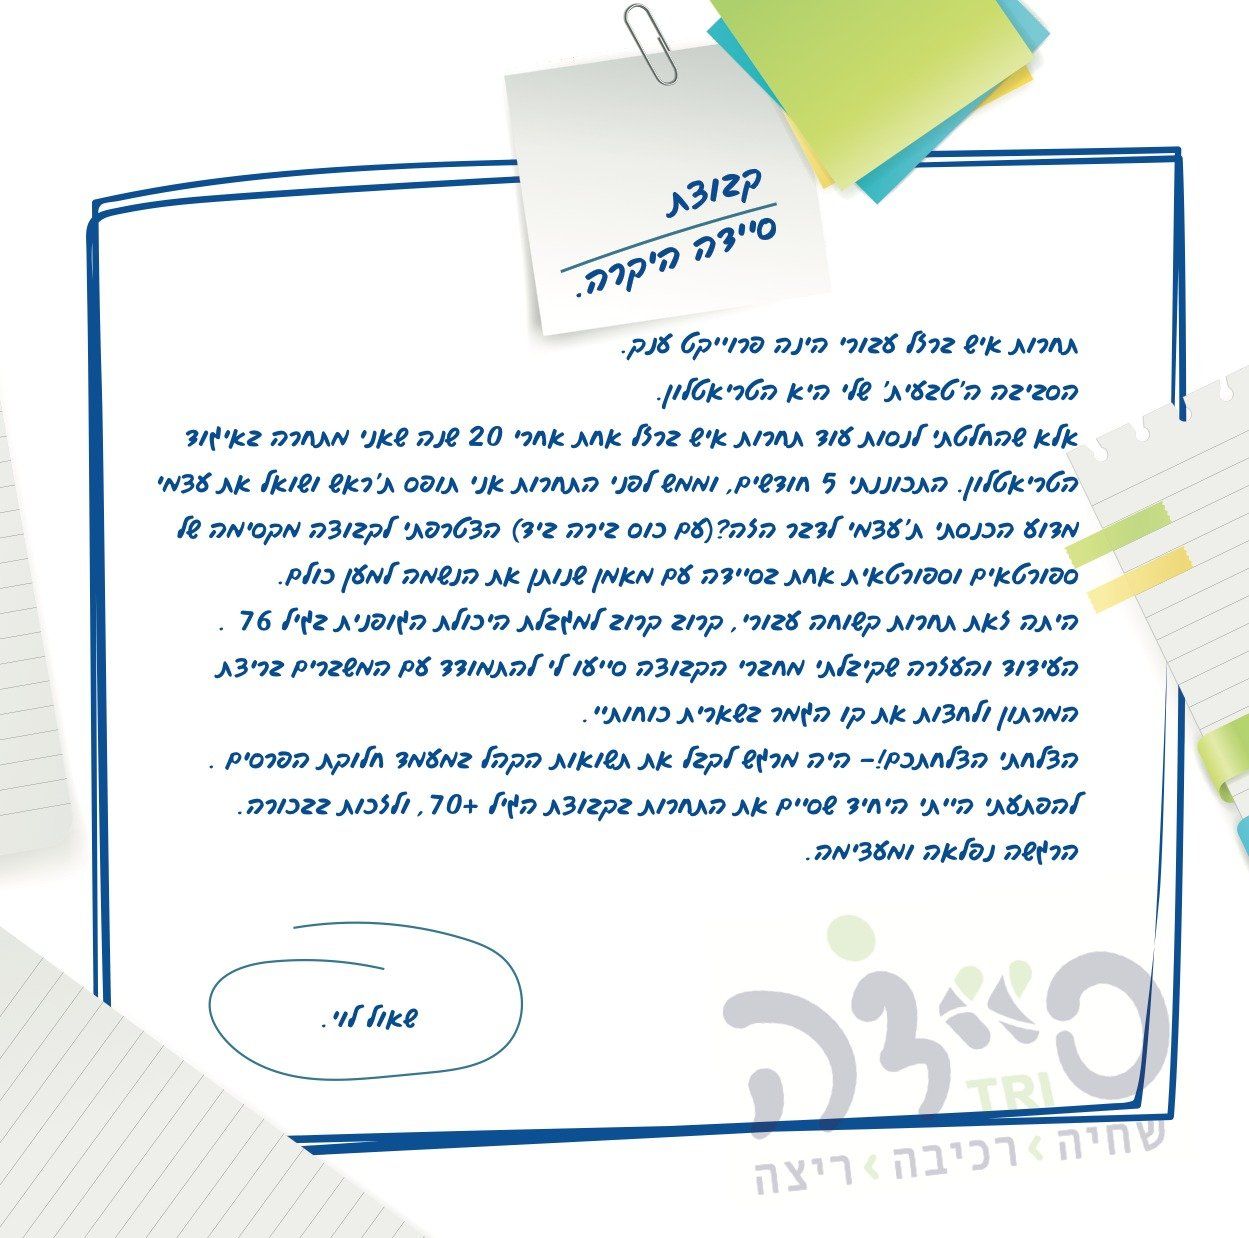 קבוצת
סיידה היקרה.
תחרות איש ברזל עבורי הינה פרוייקט ענק.
הסביבה ה'טבעית' שלי היא הטריאטלון.
אלא שהחלטתי לנסות עוד תחרות איש ברזל אחת אחרי 20 שנה שאני מתחרה באיגוד
הטריאטלון. התכוננתי 5 חודשים, וממש לפני התחרות אני תופס ת'ראש ושואל את עצמי
מדוע הכנסתי ת'עצמי לדבר הזה?(עם כוס בירה ביד) הצטרפתי לקבוצה מקסימה של
ספורטאים וספורטאית אחת בסיידה עם מאמן שנותן את הנשמה למען כולם.
היתה זאת תחרות קשוחה עבורי, קרוב קרוב למגבלת היכולת הגופנית בגיל 76 .
העידוד והעזרה שקיבלתי מחברי הקבוצה סייעו לי להתמודד עם המשברים בריצת
המרתון ולחצות את קו הגמר בשארית כוחותיי.
הצלחתי הצלחתכם!- היה מרגש לקבל את תשואות הקהל במעמד חלוקת הפרסים .
להפתעתי הייתי היחיד שסיים את התחרות בקבוצת הגיל +70, ולזכות בבכורה.
הרגשה נפלאה ומעצימה.
שאול לוי.
סיידה
TRI
שחיה > רכיבה > ריצה